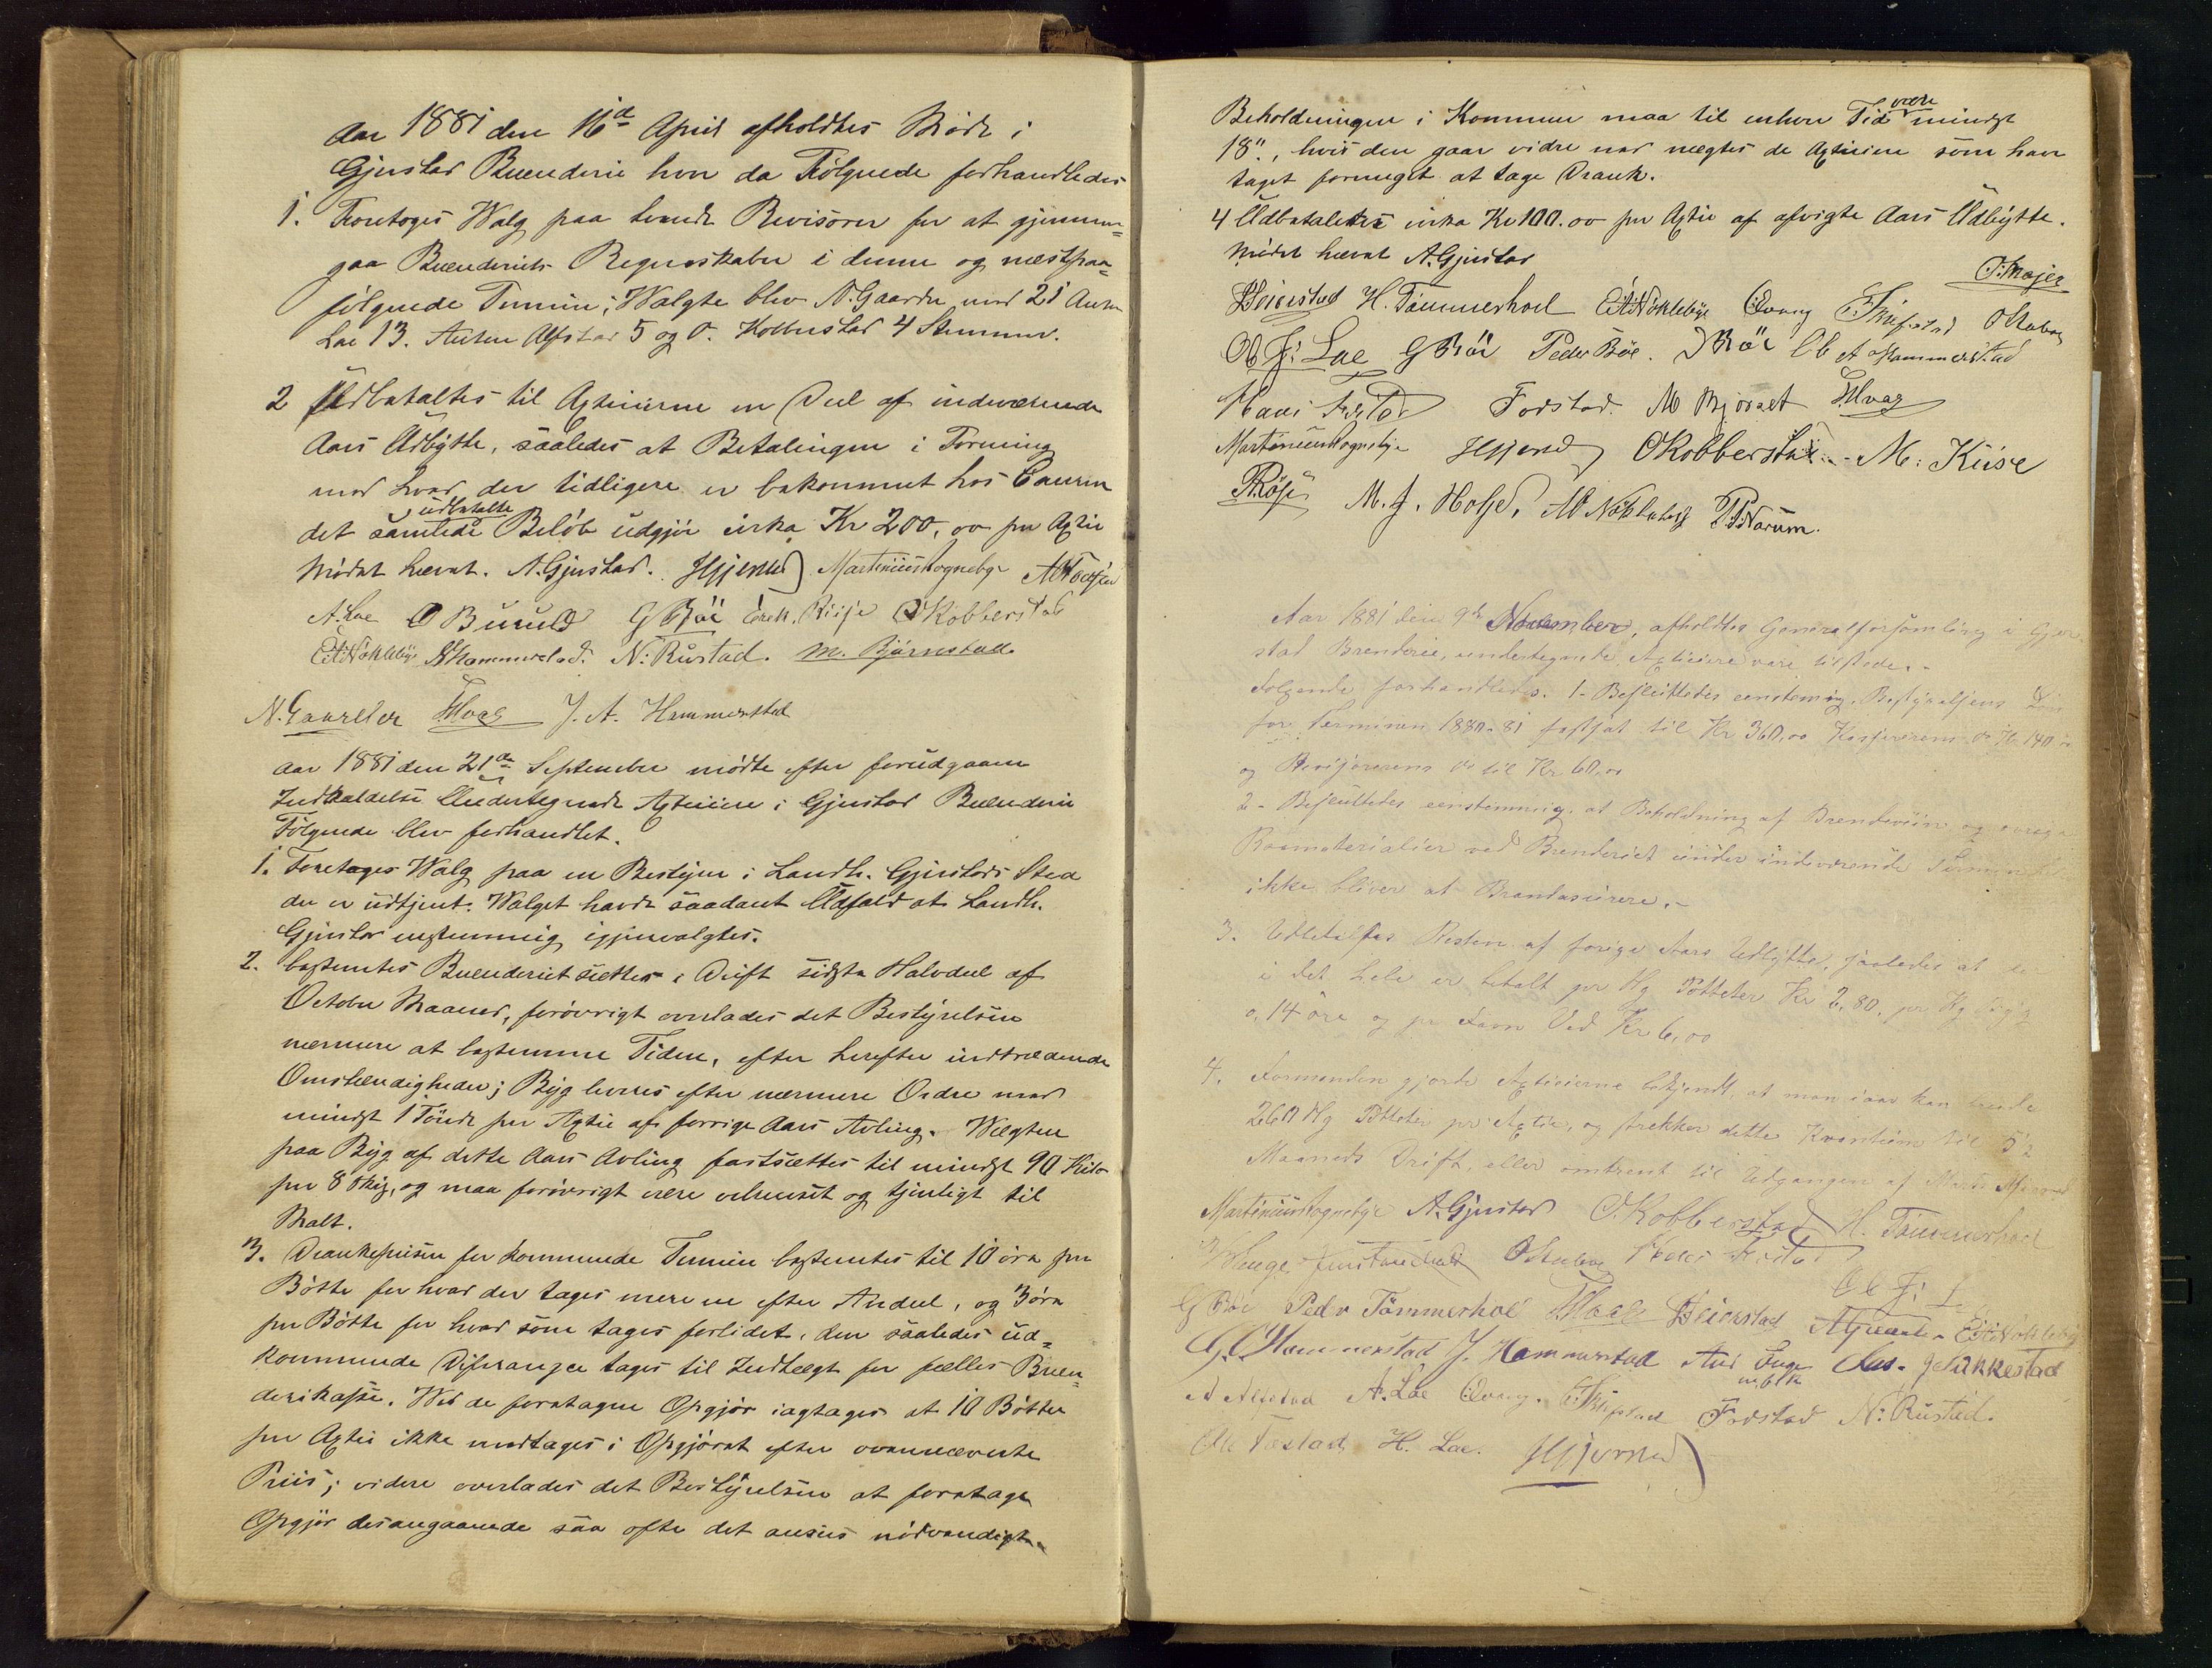 Aar 1881 den 16de April afholdtes Møde i
Gjerstad Brænderie hvor da Følgende forhandledes
1. Foretoges Valg paa tvende Revisorer for at gjennem=
gaa Brænderiets Regnskaber i denne og næstpaa=
følgende Termin; Valgte blev N. Gaarder med 21 Anton
Lae 13. Anton Alfstad 5 og O. Kobberstad 4 Stemmer.
2 Udbetaltes til Aktieierne en Deel af indeværende
Aars Udbytte, saaledes at Betalingen i Forening
med hvad der tidligere er bekommet hos
det samlede udbetalte Beløb udgjør cirka Kr 200,00 pr Aktie
Mødet hævet. A. Gjerstad. Martinius Rognebye
A. Lae G Bøe O Kobberstad
E A Nøklebye Hammerstad. N: Rustad. M. Bjørnstad.
N. Gaarder J. A. Hammerstad
Aar 1881 den 21de September mødte efter forudgaaen
Indkaldelse Undertegnede Aktieiere i Gjerstad Brænderie
Følgende blev forhandlet.
1. Foretages Valg paa en Bestyrer i Landh. Gjerstads Sted
der er udtjent. Valget havde saadant Udfald at Landh.
Gjerstad enstemmig igjenvalgtes.
2. bestemtes Brænderiet sættes i Drift sidste Halvdeel af
October Maaned, forøvrigt overlades det Bestyrelsen
nærmere at bestemme Tiden, efter herefter indtrædende
Omstændigheder; Byg leveres efter nærmere Ordre med
mindst 1 Tønde pr Aktie af forrige Aars Avling. Vægten
paa Byg af dette Aars Avling fastsættes til mindst 90 Kilo
pr 8 Skip, og maa forøvrigt være velrenset og tjenligt til
Malt.
3. Drankeprisen for kommende Termin bestemtes til 10 øre pr
Bøtte for hvad der tages mere en efter Andeel, og 3 øre
pr Bøtte for hvad som tages forlidet, den saaledes ud=
kommende Differanse tages til Indtægt for fælles Bræn=
derikasse. Ved de foretagne Opgjør iagtages at 10 Bøtter
pr Aktie ikke medtages i Opgjøret efter ovennævnte
Priis; videre overlades det Bestyrelsen at foretage
Opgjør desangaaende saa ofte det ansees nødvendigt.
Beholdningen i Kummen maa til enhver Tid være mindst
18"., hvis den gaar vidre ned nægtes de Aktieiere som har
taget formeget at tage Drank.
4 Udbetaltes cirka Kr 100.00 pr Aktie af afvigte Aars Udbytte.
Mødet hævet A. Gjerstad
Seierstad H. Tømmerhoel E A Nøklebye Qvarn
Ole J: Lae G Bøe Peder Bøe. Bøe Ole A Hammerstad
Fodstad. M Bjørset
Martinius Rognebye O Kobberstad - M. Kiise
M. J. Hotje. Narum.
Aar 1881 den 9de November, afholdtes Generalforsamling i Gjer
stad Brenderie, undertegnede Aktieiere vare tilstede. -
Følgende forhandledes. 1- Besluttedes eenstemig. Bestyrelsens Løn
for Terminen 1880-81 fastsat til Kr 360,00 Kasserens do Kr 140
og Revisorerens do til Kr 60,00
2 - Besluttedes eenstemmig, at Beholdning af Brendeviin og øvrige
Raamaterialier ved Brenderiet under indeværende Termin
ikke bliver at Brandasurere. -
3. Udbetaltes Resten af forige Aars Udbytte, saaledes at der
i det hele er betalt pr Hg Potteter Kr 2,80, pr Kg Byg
0,14 øre og pr Favn Ved Kr 6,00
4. Formanden gjorde Aktieierne bekjendt, at man iaar kan
260 Hg Potteter pr Aktie, og strekker dette Kvantum til 5½
Maaneds Drift, eller omtrent til Udgangen af Marts Maaned
Martinius Rognebye A. Gjerstad O. Kobberstad H. Tømmerhoel
Ole J: L
G Bøe Peder Tømmerhoel Seierstad E A Nøklebye
Hammerstad J. Hammerstad
A Alfstad A. Lae Qvarn. Fodstad N: Rustad.
H. Lae.